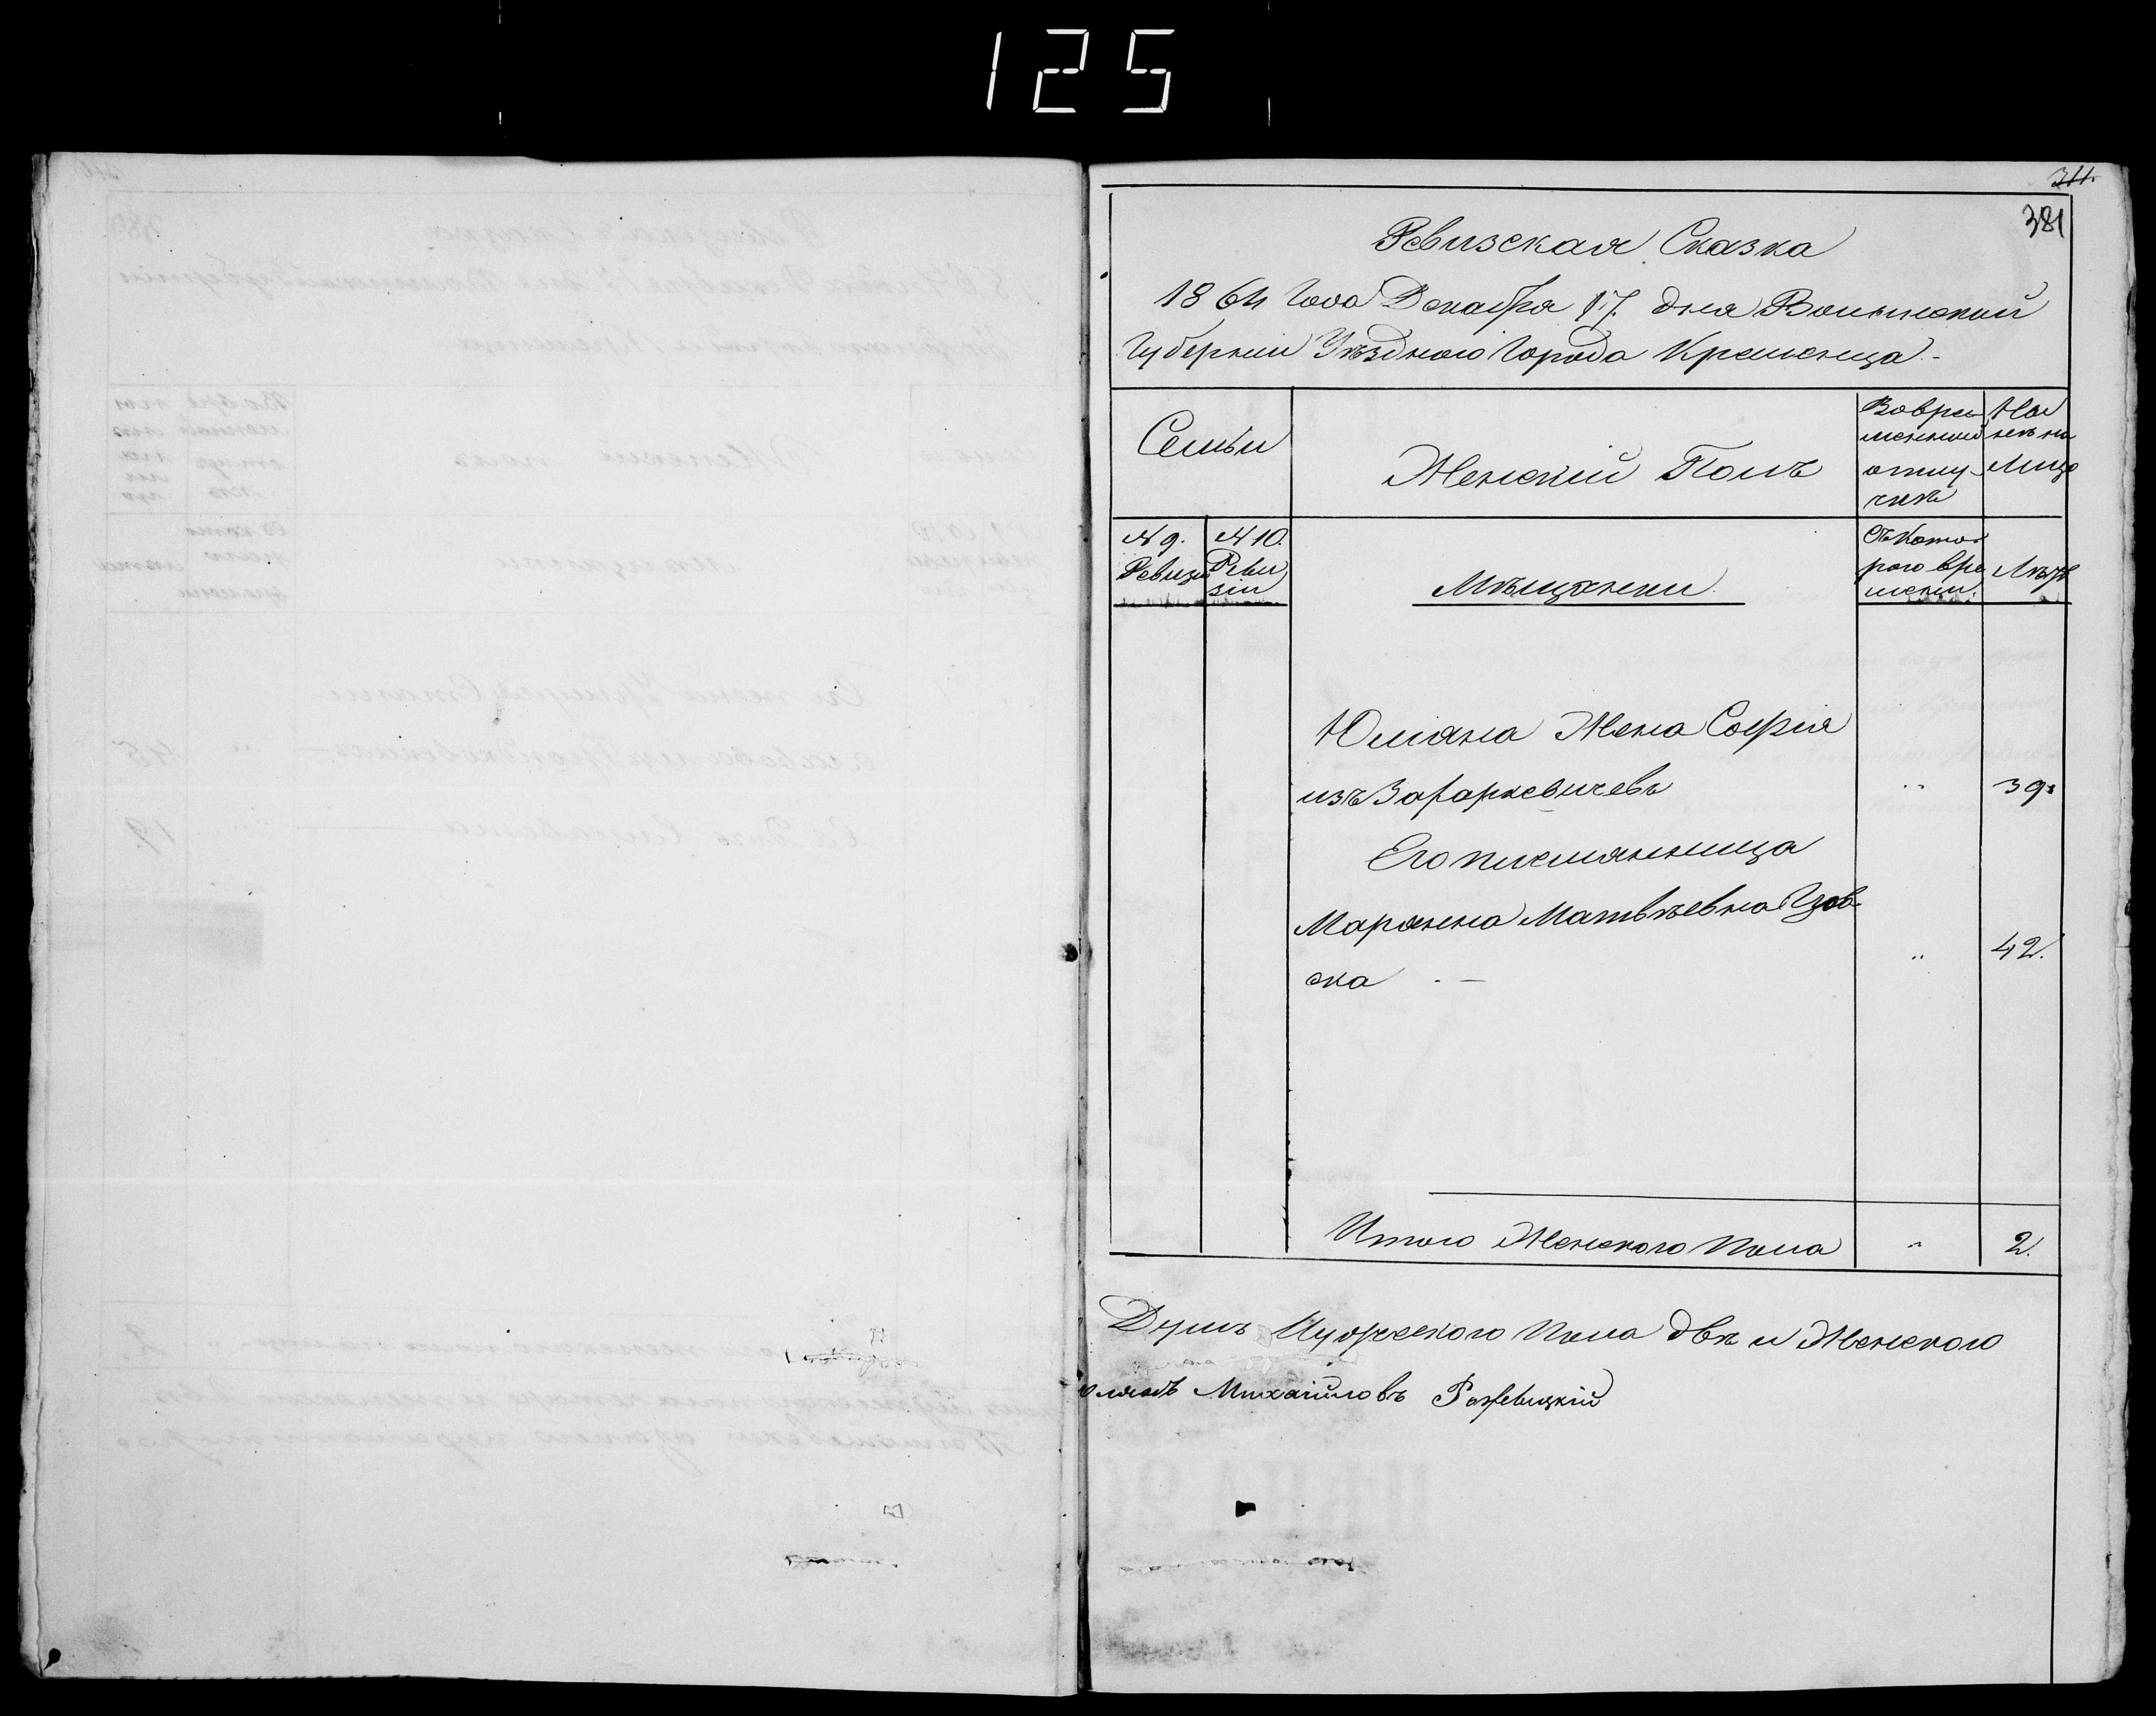 125
311.
381
Ревизская Сказка
1864 Года Декабря 17. дня Волынской
Губернии Уѣзднаго Города Кременца -
Семьи
Женскій Полъ
Вовре-
менной
отлу-
чкѣ
На
лицо
№ 9.
Ревизіи
№ 10.
Реви
зіи
Мѣщанки
Съ Кото-
раго вре
мени.
Лѣтъ
Юліяна Жена Софія
изъ Захаркевичевъ " 39.
Его племянница
Марянна Матвѣевна
ска - " 42.
Итого Женскаго Пола " 2.
Душъ Мужескаго Пола двѣ и Женскаго
Михайловъ